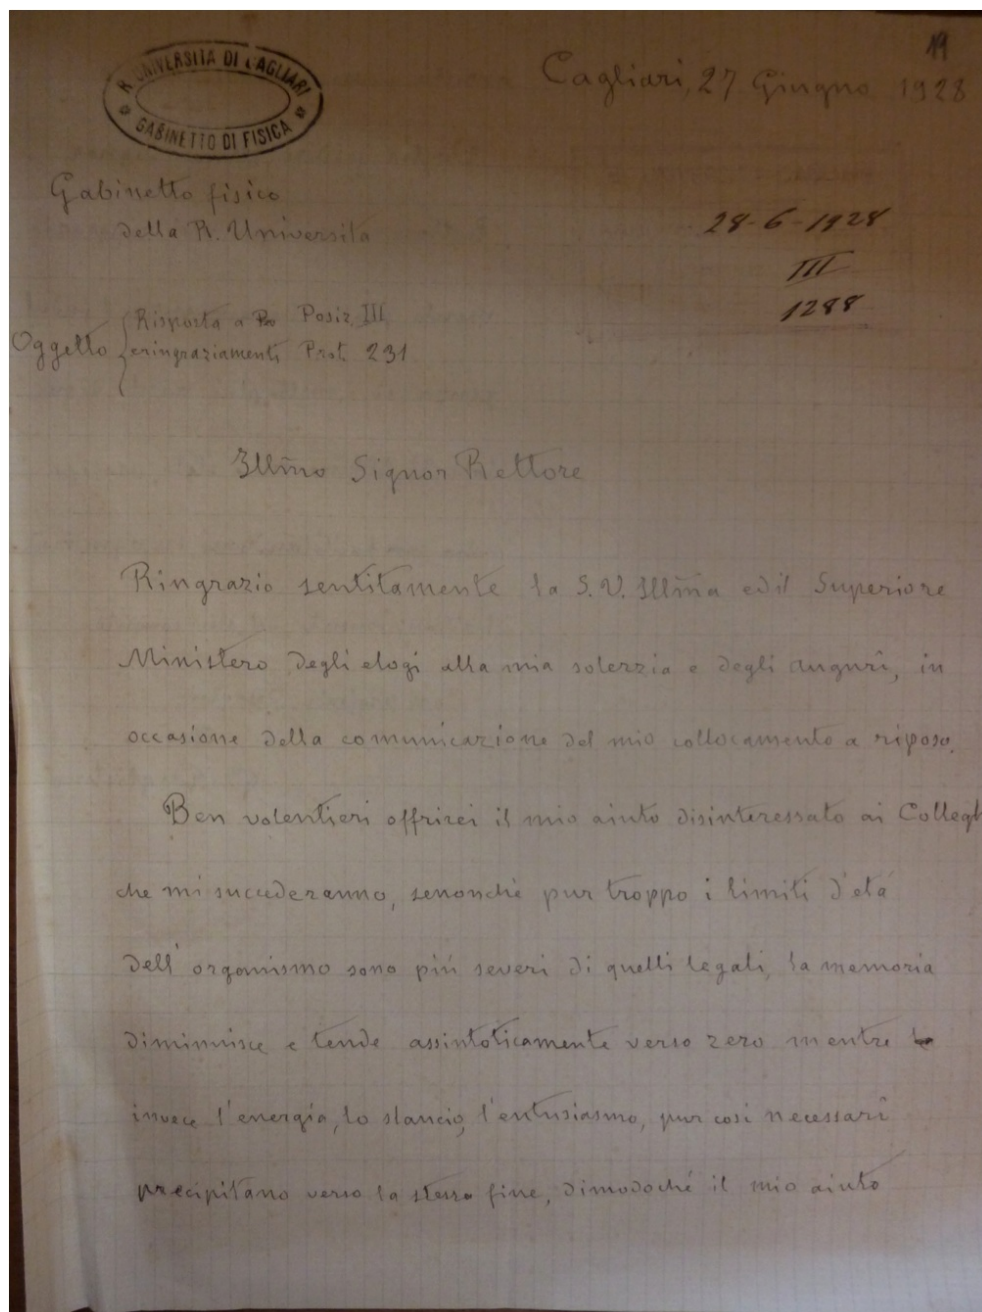 R. UNIVERSITÀ DI CAGLIARI
GABINETTO DI FISICA
19
Cagliari, 27 Giugno 1928
Gabinetto fisico
della R. Università
28-6-1928
III
1288
Oggetto
Risposta a Posiz. III
e ringraziamenti Prot. 231
Illm̃o Signor Rettore
Ringrazio sentitamente la S. V. Illm̃a ed il Superiore
Ministero degli elogi alla mia solerzia e degli augurî, in
occasione della comunicazione del mio collocamento a riposo.
Ben volentieri offrirei il mio aiuto disinteressato ai Collegh
che mi succederanno, senonchè pur troppo i limiti d'età
dell'organismo sono più severi di quelli legali, la memoria
diminuisce e tende assintoticamente verso zero mentre
invece l'energia, lo slancio, l'entusiasmo, pur così necessarî
precipitano verso la stessa fine, dimodoché il mio aiuto